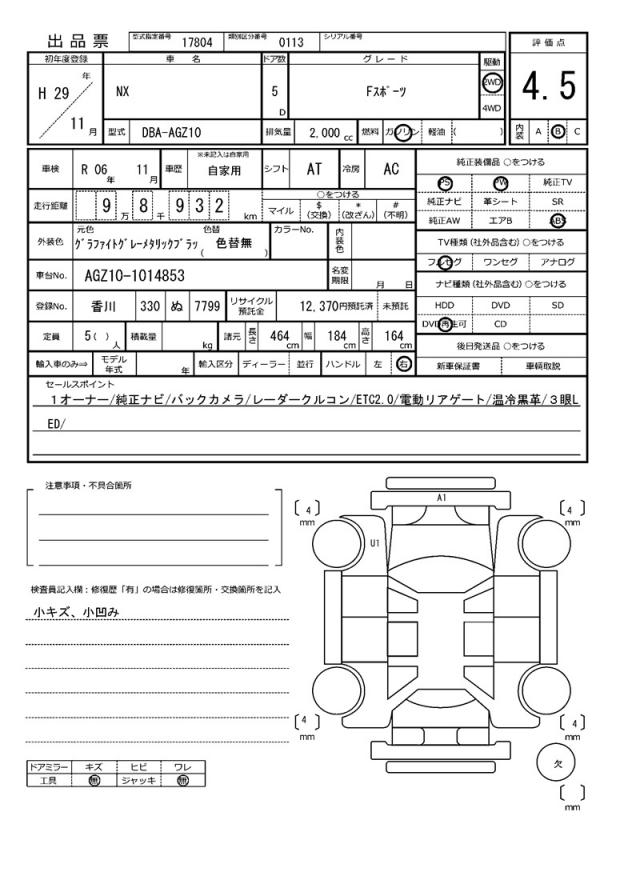 出品票 型式指定番号 17804 類別区分番号 0113 シリアル番号
評価点
初年度登録 車名 ドア数 グレード 駆動
H 29 年 NX 5 D Fスポーツ 2WD 4.5
4WD
11 月 型式 DBA-AGZ10 排気量 2,000 cc 燃料 ガソリン 軽油 ( ) 内装 A B C
車検 R 06 年 11 月 車歴 ※未記入は自家用 自家用 シフト AT 冷房 AC 純正装備品 ○をつける
PS PW 純正TV
走行距離 9 万 8 千 9 3 2 km ○をつける 純正ナビ 革シート SR
マイル $ (交換) * (改ざん) # (不明) 純正AW エアB ABS
外装色 元色 グラファイトグレーメタリックブラッ 色替 ( 色替無 ) カラーNo. 内装色 TV種類 (社外品含む) ○をつける
フルセグ ワンセグ アナログ
車台No. AGZ10-1014853 名変期限 月 日 ナビ種類 (社外品含む) ○をつける
登録No. 香川 330 ぬ 7799 リサイクル預託金 12,370 円預託済 未預託 HDD DVD SD
DVD再生可 CD
定員 5 ( ) 人 積載量 kg 諸元 長さ 464 cm 幅 184 cm 高さ 164 cm 後日発送品 ○をつける
輸入車のみ⇒ モデル年式 年 輸入区分 ディーラー 並行 ハンドル 左 右 新車保証書 車輌取説
セールスポイント
1オーナー/純正ナビ/バックカメラ/レーダークルコン/ETC2.0/電動リアゲート/温冷黒革/3眼L
ED/
注意事項・不具合箇所
[ 4 ] mm A1 [ 4 ] mm
U1
検査員記入欄：修復歴「有」の場合は修復箇所・交換箇所を記入
小キズ、小凹み
[ 4 ] mm [ 4 ] mm
ドアミラー キズ ヒビ ワレ
工具 無 ジャッキ 無
欠
[ ] mm